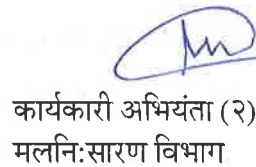 कार्यकारी अभियंता (२)
मलनि:सारण विभाग